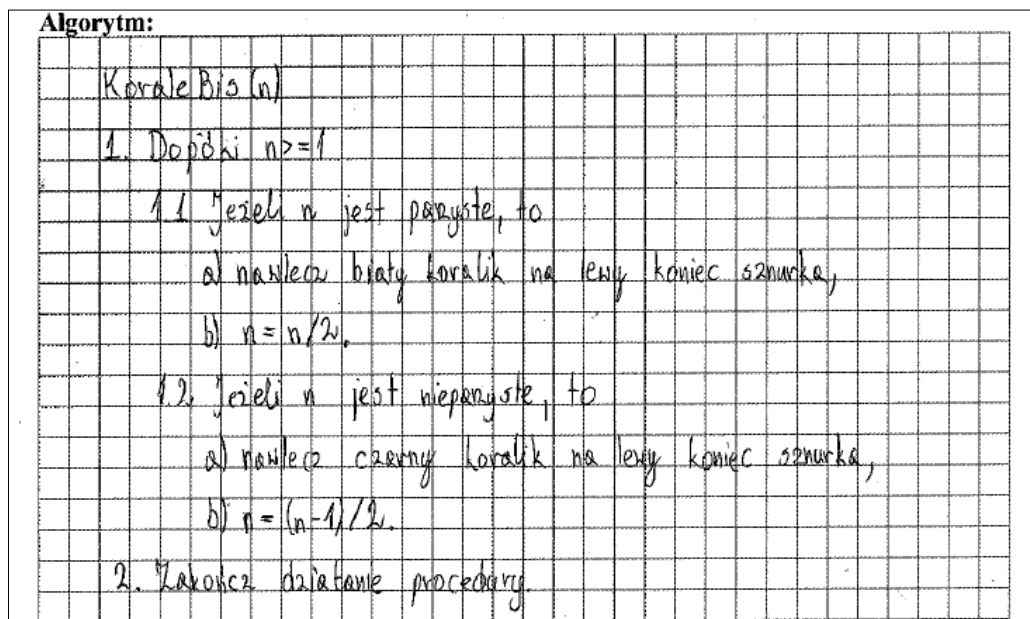 Algorytm:
KoraleBis (n)
1. Dopóki n>=1
1.1 Jeżeli n jest parzyste, to
a) nawlecz biały koralik na lewy koniec sznurka,
b) n = n/2.
1.2. Jeżeli n jest nieparzyste, to
a) nawlecz czarny koralik na lewy koniec sznurka,
b) n = (n-1)/2.
2. Zakończ działanie procedury.